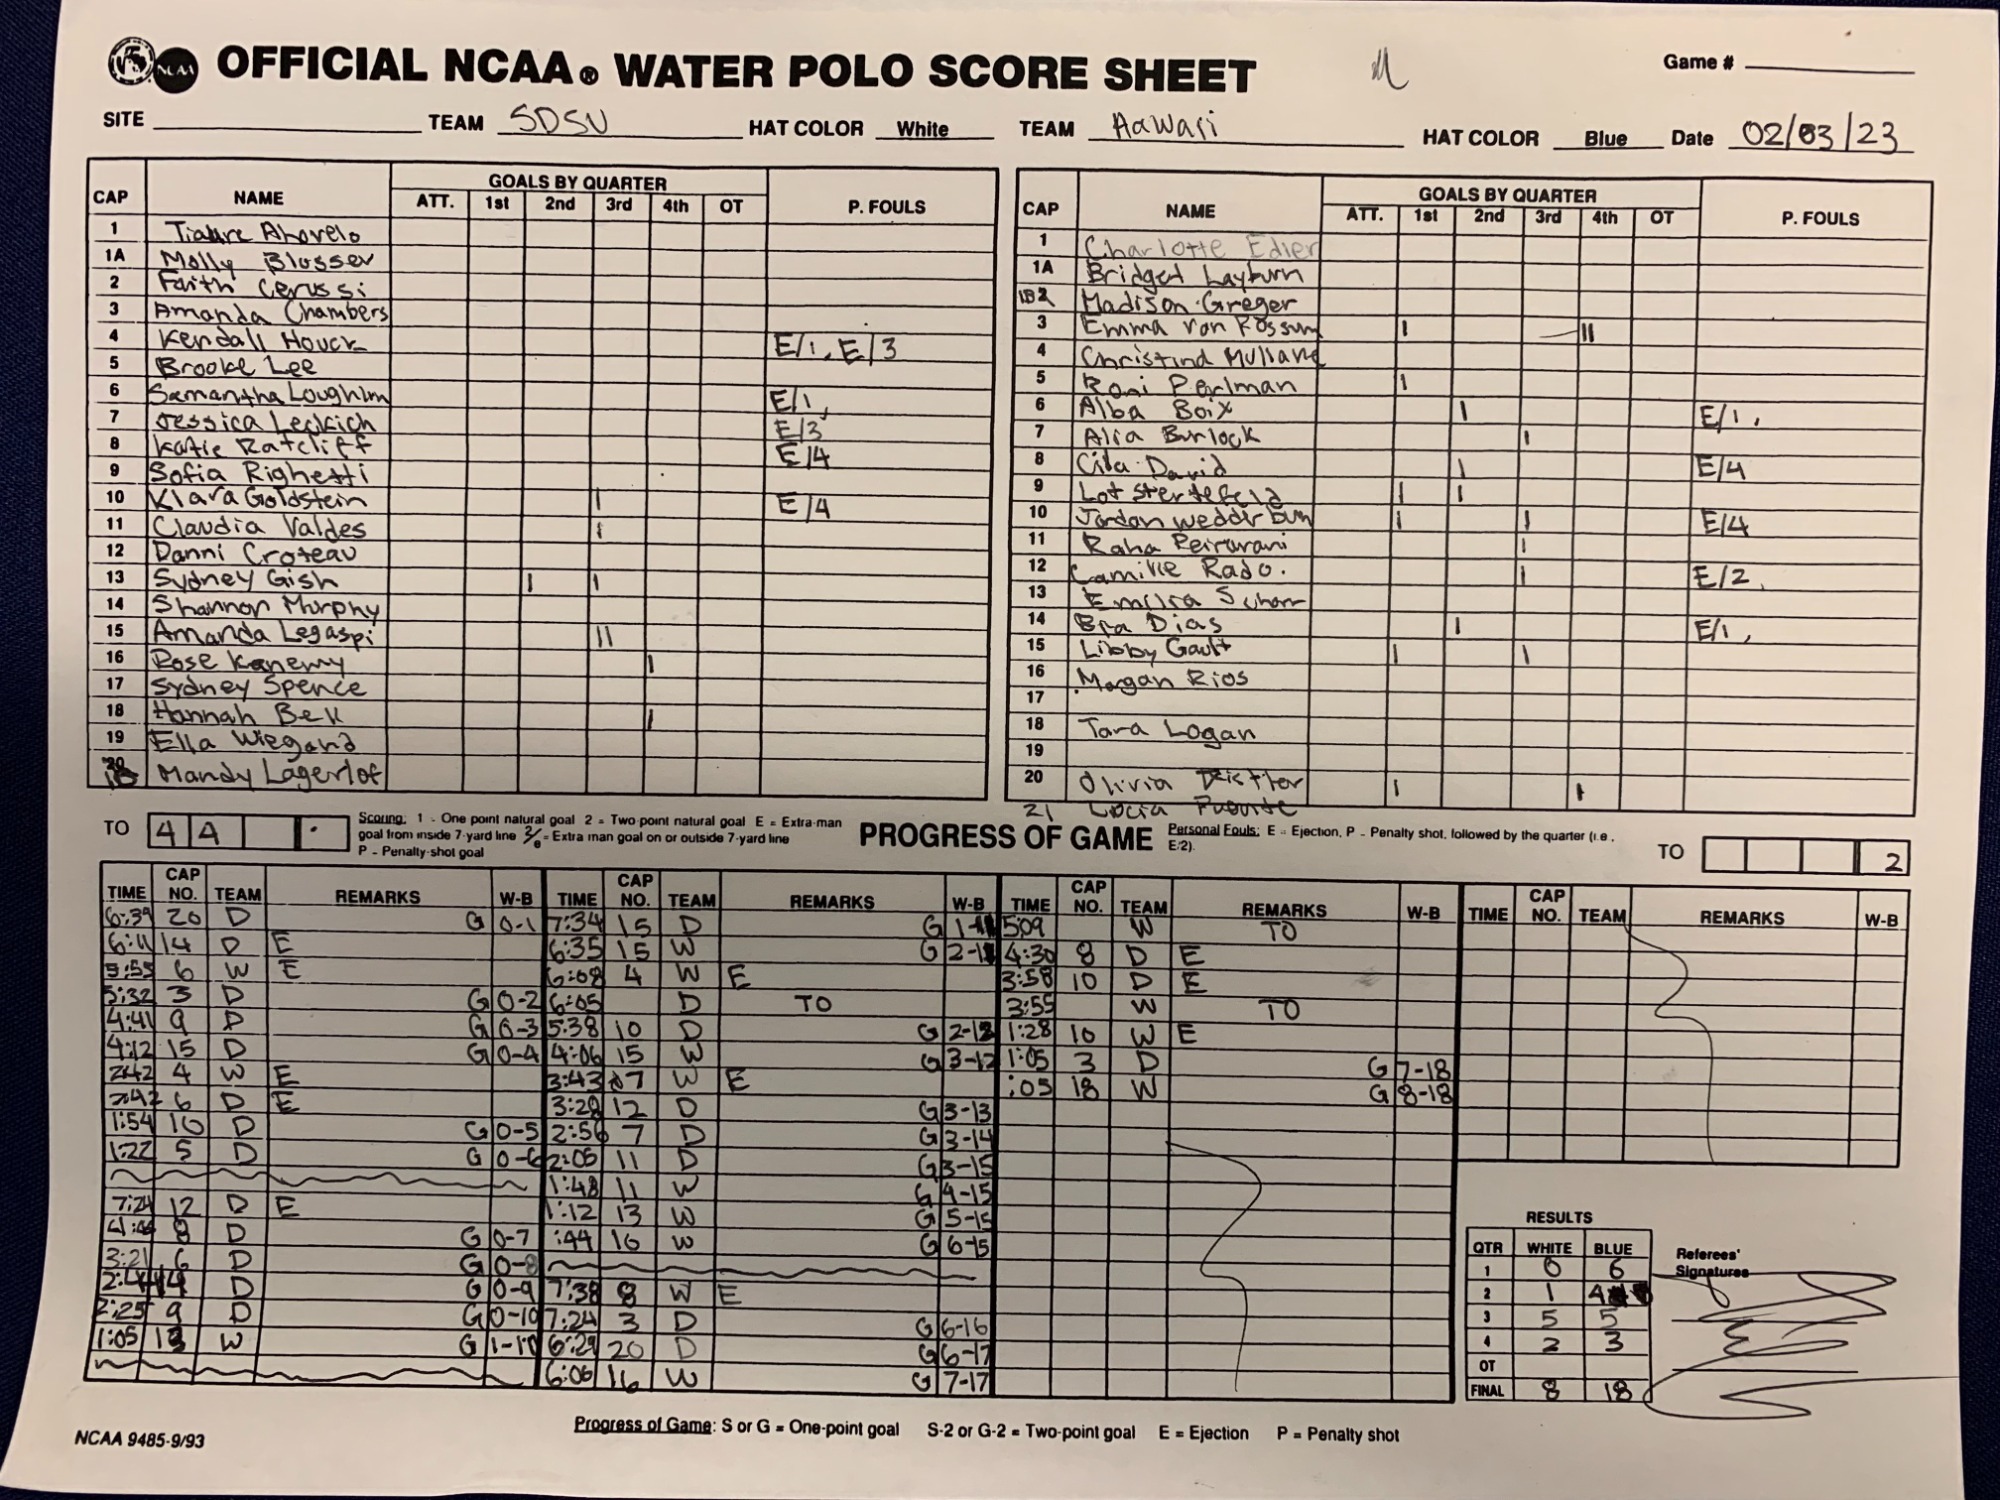 OFFICIAL NCAA® WATER POLO SCORE SHEET
Game #
SITE TEAM SDSU HAT COLOR White TEAM Hawaii HAT COLOR Blue Date 02/03/23
CAP NAME GOALS BY QUARTER ATT. 1st 2nd 3rd 4th OT P. FOULS
1 Ahovelo
1A Molly Blosser
2 Faith Cerussi
3 Amanda Chambers
4 Kendall Houck E/1, E/3
5 Brooke Lee
6 Samantha Loughlin E/1,
7 Jessica E/3
8 Katie Ratcliff E/4
9 Sofia Righetti
10 Klara Goldstein I E/4
11 Claudia Valdes I
12 Danni Croteau
13 Sydney Gish I I
14 Shannon Murphy
15 Amanda Legaspi II
16 Rose Kanemy I
17 Sydney Spence
18 Hannah Bek I
19 Ella Wiegand
Mandy Lagerlof
CAP NAME GOALS BY QUARTER ATT. 1st 2nd 3rd 4th OT P. FOULS
1 Charlotte Edler
1A Bridget Layburn
1B Madison Greger
3 Emma Van Rossum I II
4 Christina
5 Roni Perlman I
6 Alba Boix I E/1,
7 Alia Burlock I
8 David I E/4
9 Lot Stertefeld I I
10 Jordan Wedderburn I I E/4
11 Raha Peiravani I
12 Camille Rado. I E/2,
13 Emilia
14 Bia Dias I E/1,
15 Libby Gault I I
16 Morgan Rios
17
18 Tara Logan
19
20 Olivia I I
21 Lucia Puente
TO 4 4
Scoring: 1 - One point natural goal 2 = Two point natural goal E = Extra-man
goal from inside 7-yard line 2/e = Extra man goal on or outside 7-yard line
P - Penalty-shot goal
PROGRESS OF GAME
Personal Fouls: E - Ejection, P - Penalty shot, followed by the quarter (i.e.,
E/2).
TO 2
TIME CAP NO. TEAM REMARKS W-B
6:39 20 D G 0-1
6:11 14 D E
5:55 6 W E
5:32 3 D G 0-2
4:41 9 D G 0-3
4:12 15 D G 0-4
2:42 4 W E
2:42 6 D E
1:54 10 D G 0-5
1:22 5 D G 0-6
7:24 12 D E
8 D G 0-7
3:21 6 D G 0-8
2:44 14 D G 0-9
2:25 9 D G 0-10
1:05 13 W G 1-10
TIME CAP NO. TEAM REMARKS W-B
7:34 15 D G 1-11
6:35 15 W G 2-11
6:08 4 W E
6:05 D TO
5:38 10 D G 2-12
4:06 15 W G 3-12
3:43 7 W E
3:28 12 D G 3-13
2:56 7 D G 3-14
2:05 11 D G 3-15
1:48 11 W G 4-15
1:12 13 W G 5-15
:44 10 W G 6-15
7:38 8 W E
7:24 3 D G 6-16
6:29 20 D G 6-17
6:06 16 W G 7-17
TIME CAP NO. TEAM REMARKS W-B
5:09 W TO
4:30 8 D E
3:58 10 D E
3:55 W TO
1:28 10 W E
1:05 3 D G 7-18
:05 18 W G 8-18
TIME CAP NO. TEAM REMARKS W-B
RESULTS
QTR WHITE BLUE
1 0 6
2 1 4
3 5 5
4 2 3
OT
FINAL 8 18
Referees'
Signatures
Progress of Game: S or G = One-point goal S-2 or G-2 = Two-point goal E = Ejection P = Penalty shot
NCAA 9485-9/93